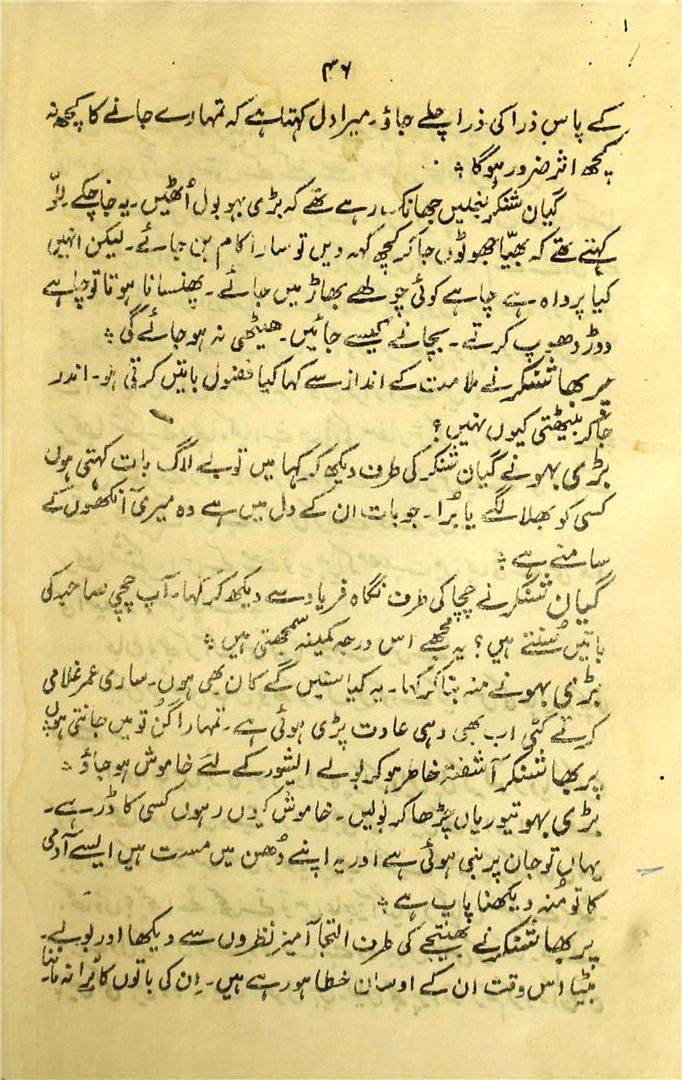 ۱
۴۶
کے پاس ذرا کی ذرا چلے جاؤ۔ میرا دل کہتا ہے کہ تمہارے جانے کا کچھ نہ
کچھ اثر ضرور ہوگا ؞
گیان شنکر بغلیں جھانک رہے تھے کہ بڑی بہو بول اُٹھیں۔ یہ جا چکے۔ للّو
کہتے تھے کہ بھیّا جھوٹوں جا کر کچھ کہہ دیں تو سارا کام بن جائے۔ لیکن انہیں
کیا پرواہ ہے چاہے کوئی چولھے بھاڑ میں جائے۔ پھنسانا ہوتا تو چاہے
دوڑ دھوپ کرتے۔ بچانے کیسے جائیں۔ ھیٹھی نہ ہو جائے گی ؞
پربھا شنکر نے ملامت کے انداز سے کہا کیا فضول باتیں کرتی ہو۔ اندر
جا کر بیٹھتی کیوں نہیں؟
بڑی بہو نے گیان شنکر کی طرف دیکھ کر کہا میں تو بے لاگ بات کہتی ہوں
کسی کو بھلا لگے یا بُرا۔ جو بات ان کے دل میں ہے وہ میری آنکھوں کے
سامنے ہے ؞
گیان شنکر نے چچا کی طرف نگاہ فریاد سے دیکھ کر کہا۔ آپ چچی صاحبہ کی
باتیں سُنتے ہیں؟ یہ مجھے اس درجہ کمینہ سمجھتی ہیں ؞
بڑی بہو نے منہ بنا کر کہا۔ یہ کیا سنیں گے کان بھی ہوں۔ ساری عمر غلامی
کرتے کٹی اب بھی وہی عادت پڑی ہوئی ہے۔ تمہارا گُن تو میں جانتی ہوں ؞
پربھا شنکر آشفتہ خاطر ہو کر بولے ایشور کے لئے خاموش ہو جاؤ ؞
بڑی بہو تیوریاں چڑھا کر بولیں۔ خاموش کیوں رہوں کسی کا ڈر ہے۔
یہاں تو جان پر بنی ہوئی ہے اور یہ اپنے دُھن میں مست ہیں ایسے آدمی
کا تو مُنہ دیکھنا پاپ ہے ؞
پربھا شنکر نے بھتیجے کی طرف التجا آمیز نظروں سے دیکھا اور بولے۔
بیٹا اس وقت ان کے اوسان خطا ہو رہے ہیں۔ اِن کی باتوں کا بُرا نہ ماننا